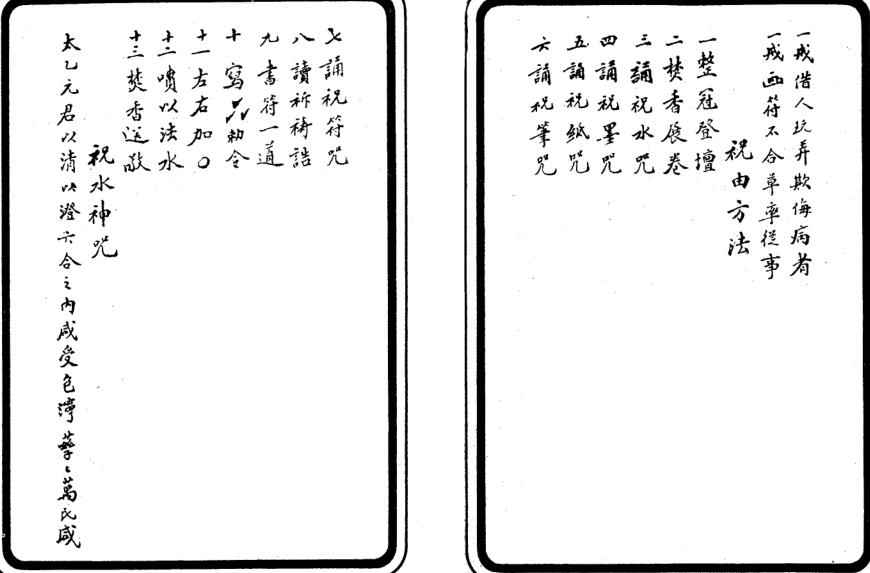 一戒借人玩弄欺侮病者
一戒画符不合草率從事
祝由方法
一整冠登壇
二焚香展卷
三誦祝水咒
四誦祝墨咒
五誦祝紙咒
六誦祝筆咒
七誦祝符咒
八讀祈禱誥
九書符一道
十寫勅令
十一左右加〇
十二噴以法水
十三焚香送敬
祝水神咒
太乙元君以清以澄六合之內咸受包萬民咸